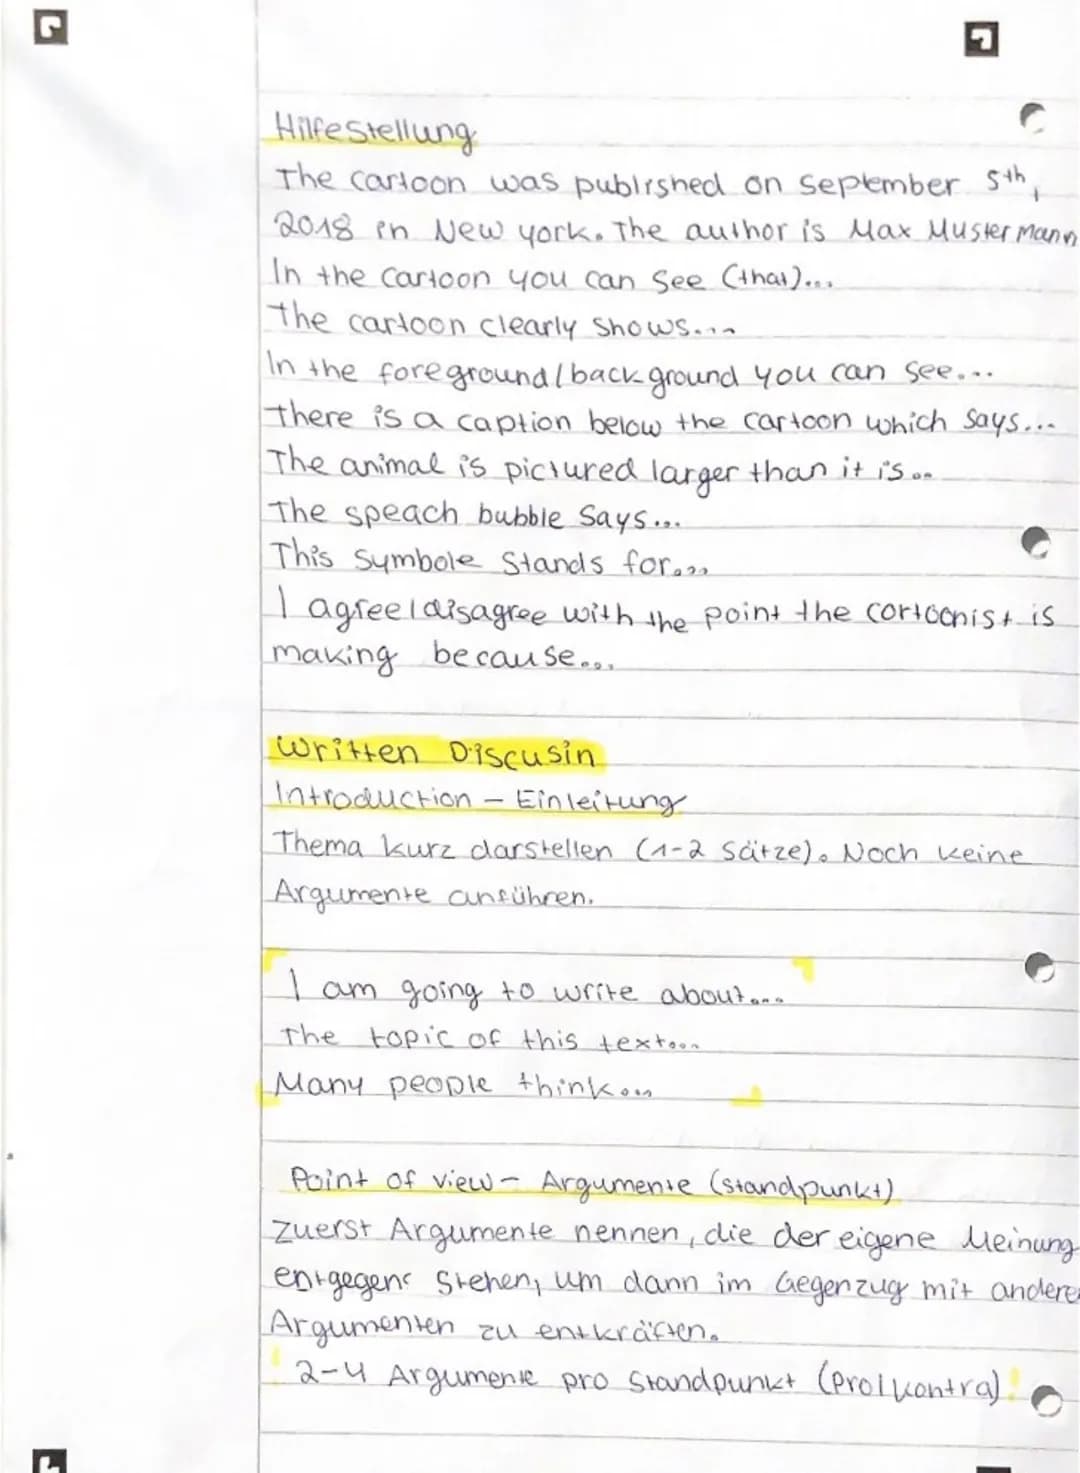 Hilfestellung
The cartoon was published on september 5th,
2018 in New york. The author is Max Mustermann
In the cartoon you can see (that)...
The cartoon clearly shows...
In the foreground/background you can see...
There is a caption below the cartoon which says...
The animal is pictured larger than it is...
The speach bubble says...
This symbole stands for...
I agree/disagree with the point the cartoonist is
making because...
Written Discusin
Introduction - Einleitung
Thema kurz darstellen (1-2 Sätze). Noch keine
Argumente anführen.
I am going to write about...
The topic of this text...
Many people think...
Point of view - Argumente (standpunkt)
zuerst Argumente nennen, die der eigene Meinung
entgegen stehen, um dann im Gegenzug mit andere
Argumenten zu entkräften.
! 2-4 Argumente pro Standpunkt (Pro/kontra)!